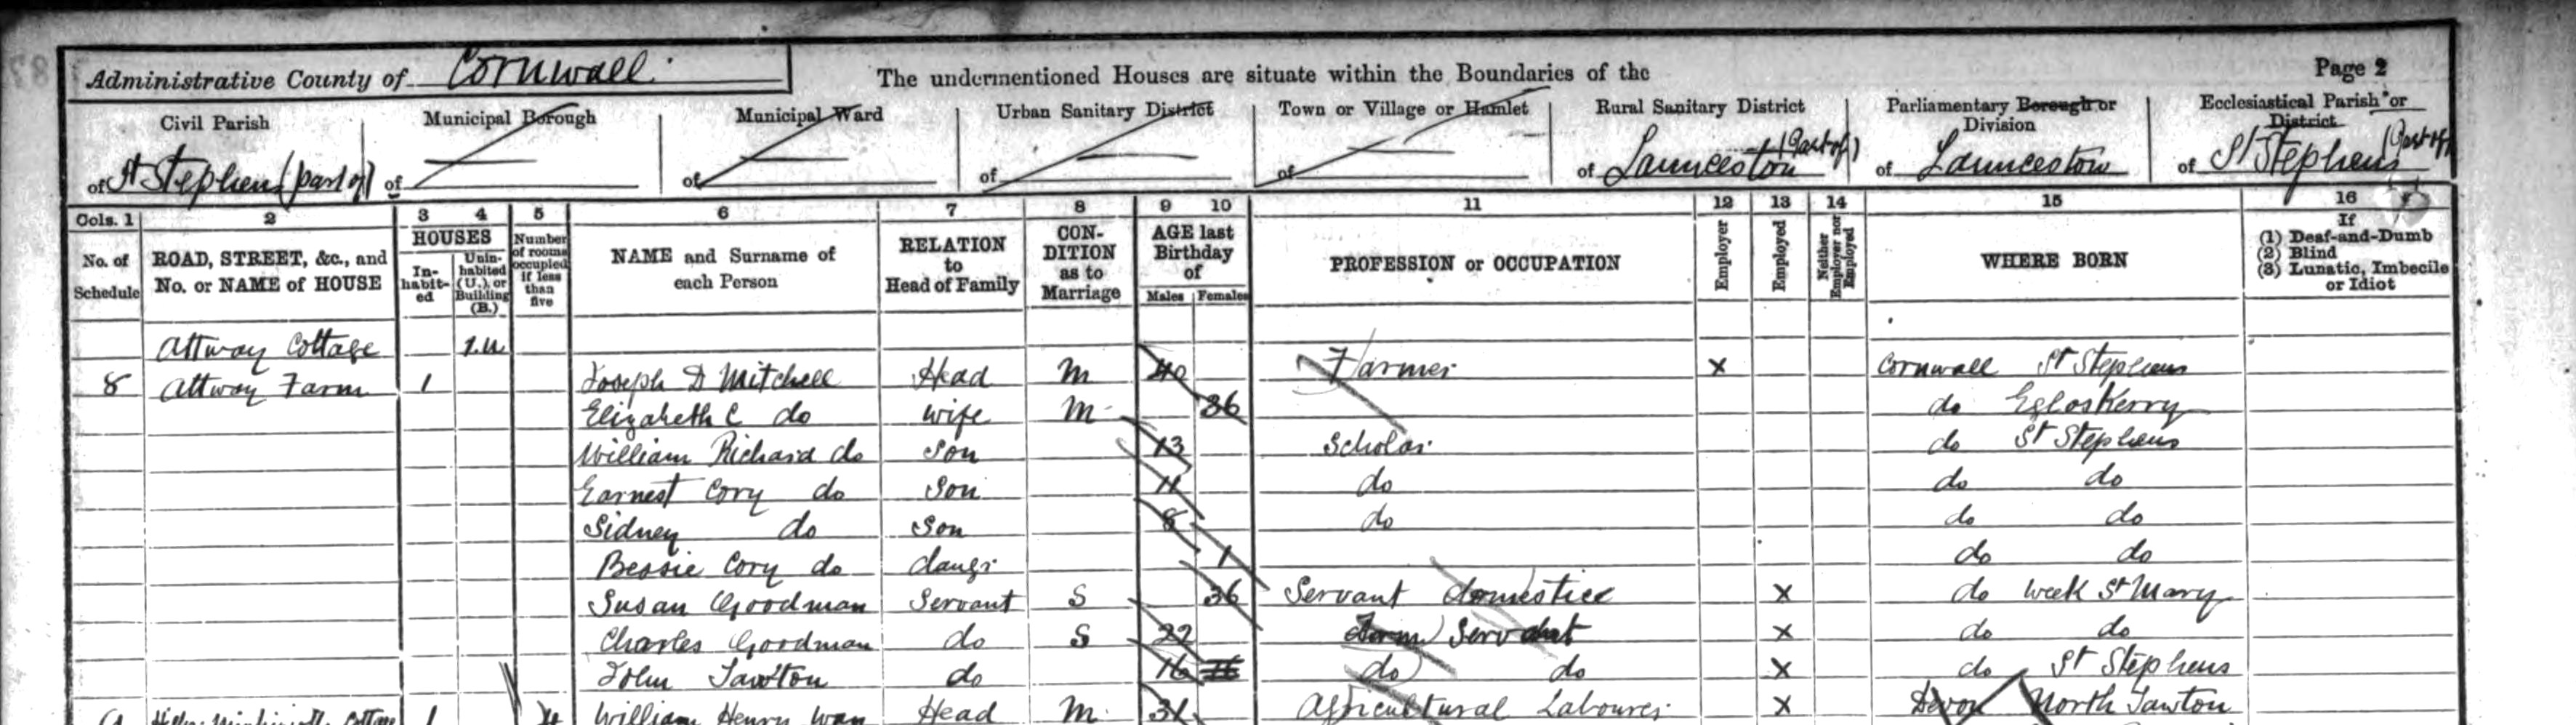 Administrative County of Cornwall The undermentioned Houses are situate within the Boundaries of the Page 2
Civil Parish Municipal Borough Municipal Ward Urban Sanitary District Town or Village or Hamlet Rural Sanitary District Parliamentary Borough or Division Ecclesiastical Parish or District
of St Stephens (part of) of of of of of Launceston (Part of) of Launceston of St Stephens (Part of)
Cols. 1 2 3 4 5 6 7 8 9 10 11 12 13 14 15 16
No. of Schedule ROAD, STREET, &c., and No. or NAME of HOUSE HOUSES In-habit-ed Unin-habited (U.), or Building (B.) Number of rooms occupied if less than five NAME and Surname of each Person RELATION to Head of Family CON-DITION as to Marriage AGE last Birthday of Males Females PROFESSION or OCCUPATION Employer Employed Neither Employer nor Employed WHERE BORN If (1) Deaf-and-Dumb (2) Blind (3) Lunatic, Imbecile or Idiot
Attway Cottage 1.U
8 Attway Farm 1 Joseph D Mitchell Head M 40 Farmer X Cornwall St Stephens
Elizabeth C do Wife M 36 do Egloskerry
William Richard do Son 13 Scholar do St Stephens
Earnest Cory do Son 11 do do do
Sidney do Son 8 do do do
Bessie Cory do daugr 1 do do
Susan Goodman Servant S 36 Servant domestice X do Week St Mary
Charles Goodman do S 22 Farm Servant X do do
John Tawton do 16 16 do do X do St Stephens
9 Cottage 1 4 William Henry Head M 31 Agricultural Labourer X Devon North Tawton